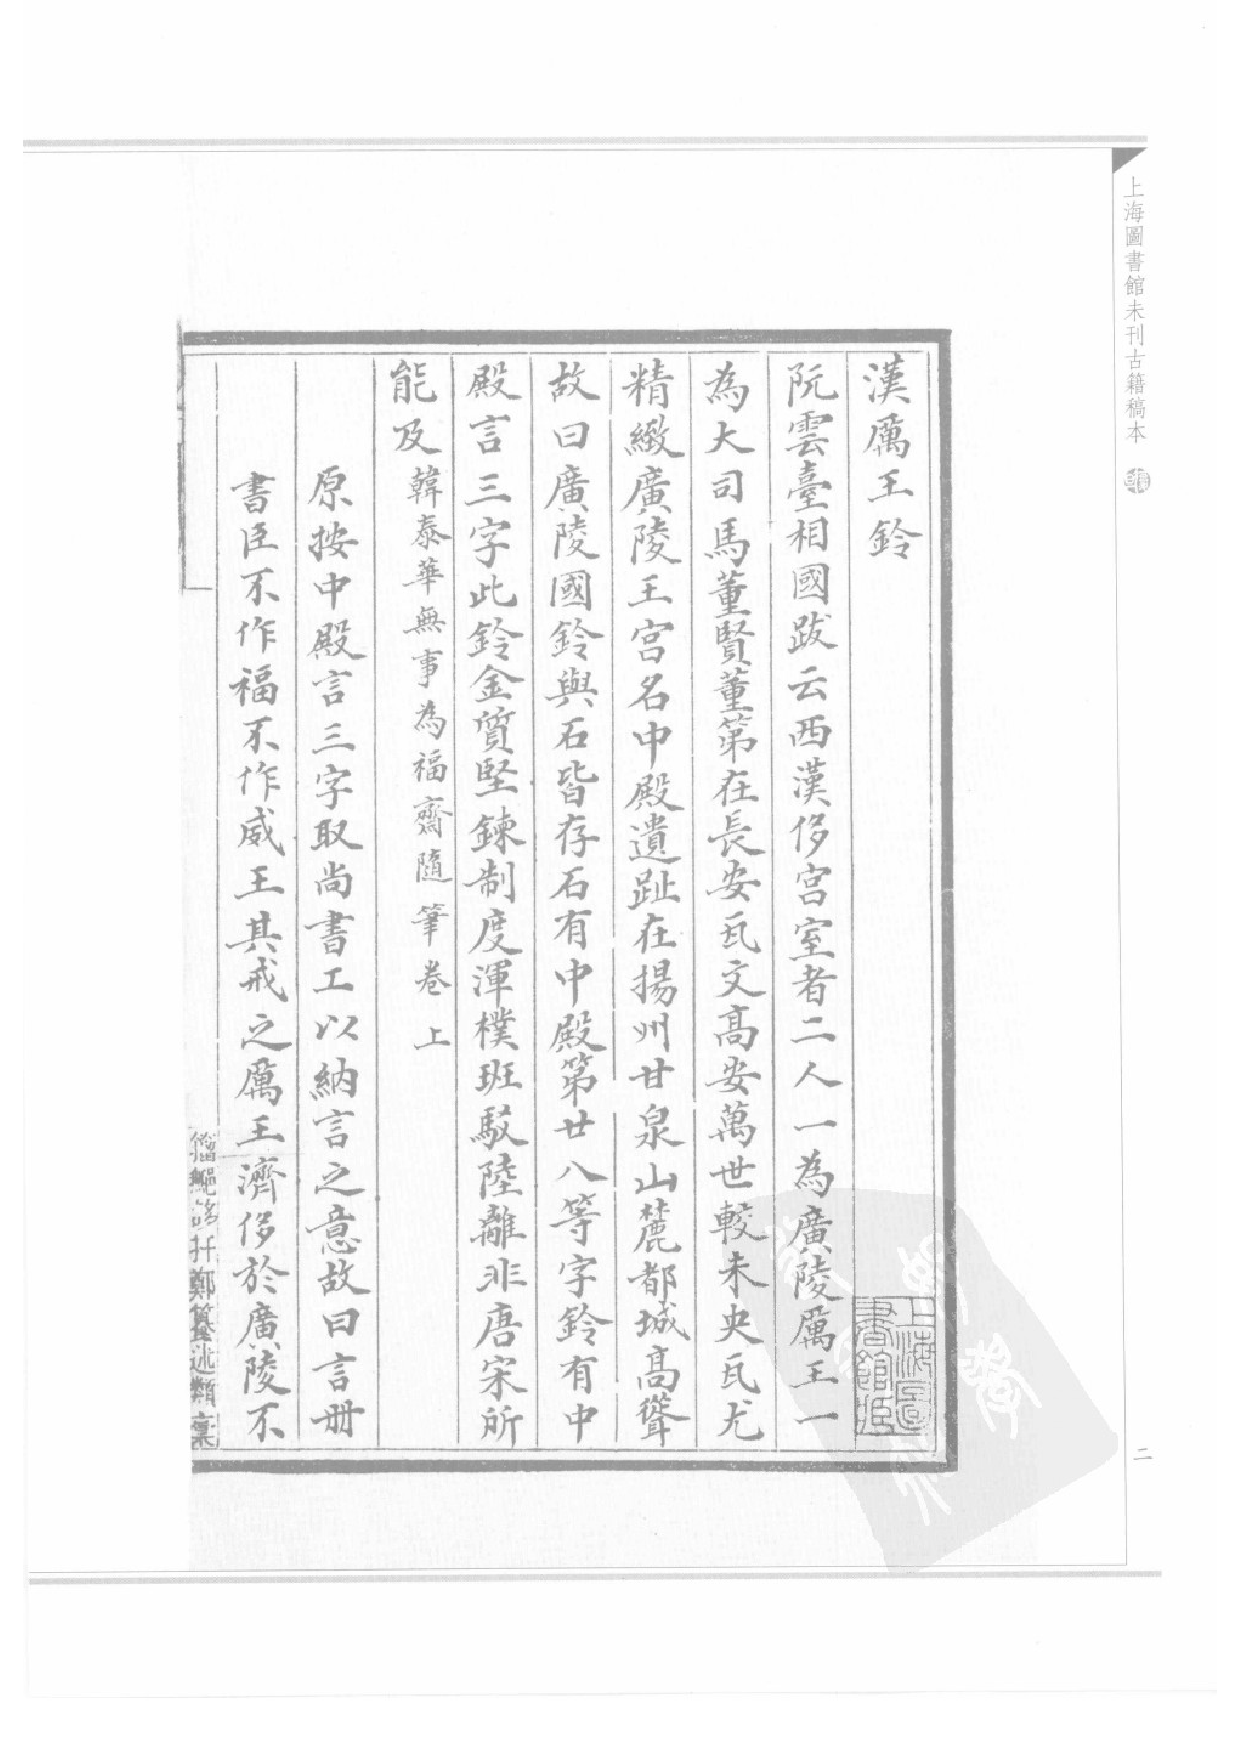 上海圖書館未刊古籍稿本
二
漢厲王鈴
阮雲臺相國跋云西漢侈宮室者二人一為廣陵厲王一
為大司馬董賢董第在長安瓦文高安萬世較未央瓦尤
精緻廣陵王宮名中殿遺趾在揚州甘泉山麓都城高聳
故曰廣陵國鈴與石皆存石有中殿第廿八等字鈴有中
殿言三字此鈴金質堅鍊制度渾樸班駁陸離非唐宋所
能及韓泰華無事為福齋隨筆卷上
原按中殿言三字取尚書工以納言之意故曰言冊
書臣不作福不作威王其戒之厲王濟侈於廣陵不
鄭簋述類稾
上海圖書館臧